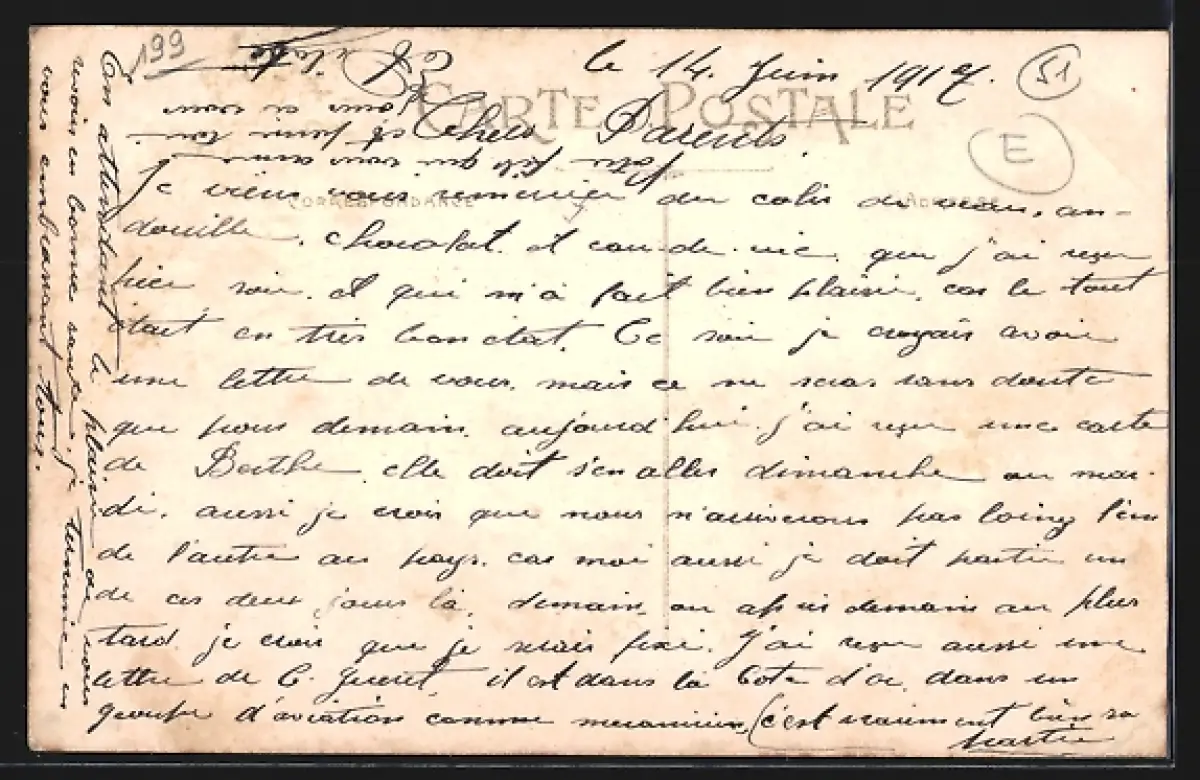 199
le 14. Juin 1917.
51
CARTE POSTALE
E
Chers Parents
CORRESPONDANCE
ADRESSE
Je viens vous remercier du colis de an-
douille, chocolat. et eau-de-vie. que j'ai reçu
hier soir. et qui m'a fait bien plaisir, car le tout
était en très bon état. Ce soir je croyais avoir
une lettre de vous. mais ce ne seras sans doute
que pour demain. aujourd'hui. j'ai reçu une carte
de Berthe elle doit s'en aller dimanche ou mar-
di. aussi je crois que nous n'arriverons pas loing l'un
de l'autre au pays. car moi aussi je doit partir un
de ces deux jours là. demain ou après demain au plus
tard. je crois que je serais fixé. J'ai reçu aussi une
lettre de C. Gueret, il est dans la Cote d'or, dans un
groupe d'aviation comme mecanicien, (c'est vraiment bien sa
partie
En attendant le plaisir de vous
revoir en bonne santé, je termine en
vous embrassant tous.
Votre fils qui vous aime
et pour la vie